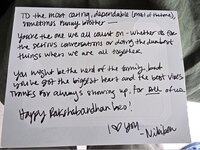 To the most caring, dependable (most of the time),
sometimes funny sister —
You're the one we all count on - whether it's for
the serious conversations or doing the dumbest
things when we are all together.
You might be the nerd of the family, but
you've got the biggest heart and the best vibes.
Thanks for always showing up, for all of us.
Happy Rakshabandhan
I ♡ you